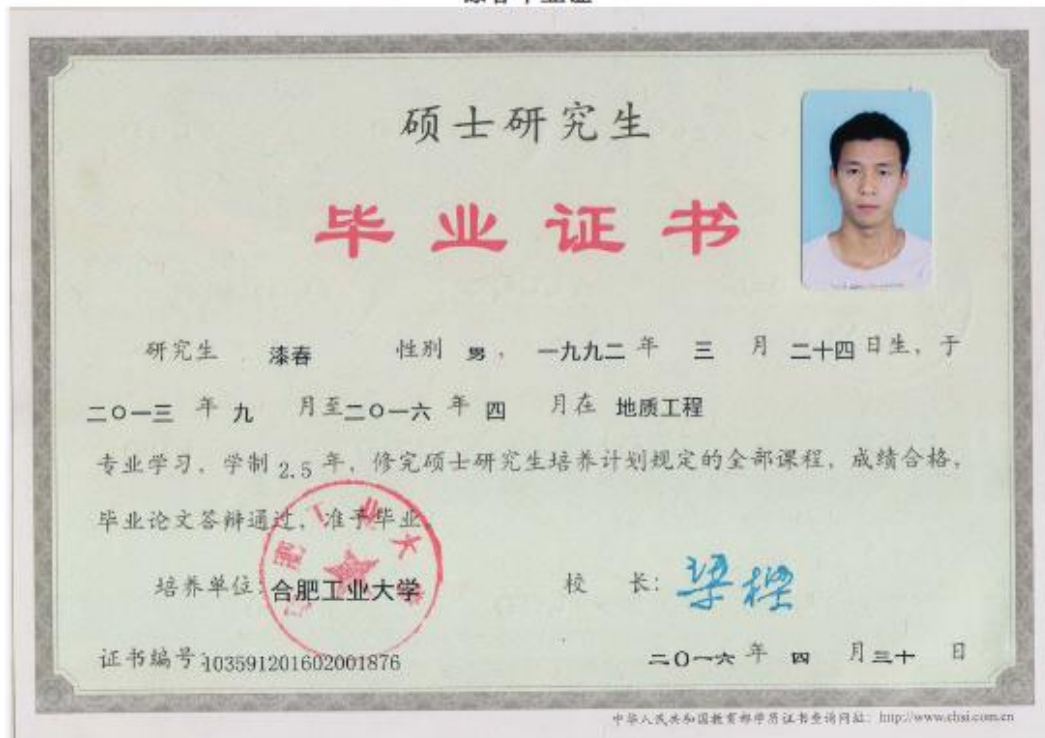 漆春毕业证
硕士研究生
毕业证书
研究生 漆春 性别 男， 一九九二 年 三 月 二十四 日生，于
二〇一三 年 九 月至二〇一六 年 四 月在 地质工程
专业学习，学制 2.5 年，修完硕士研究生培养计划规定的全部课程，成绩合格，
毕业论文答辩通过，准予毕业。
培养单位：合肥工业大学
校 长：梁樑
证书编号：103591201602001876
二〇一六 年 四 月三十 日
中华人民共和国教育部学历证书查询网址：http://www.chsi.com.cn